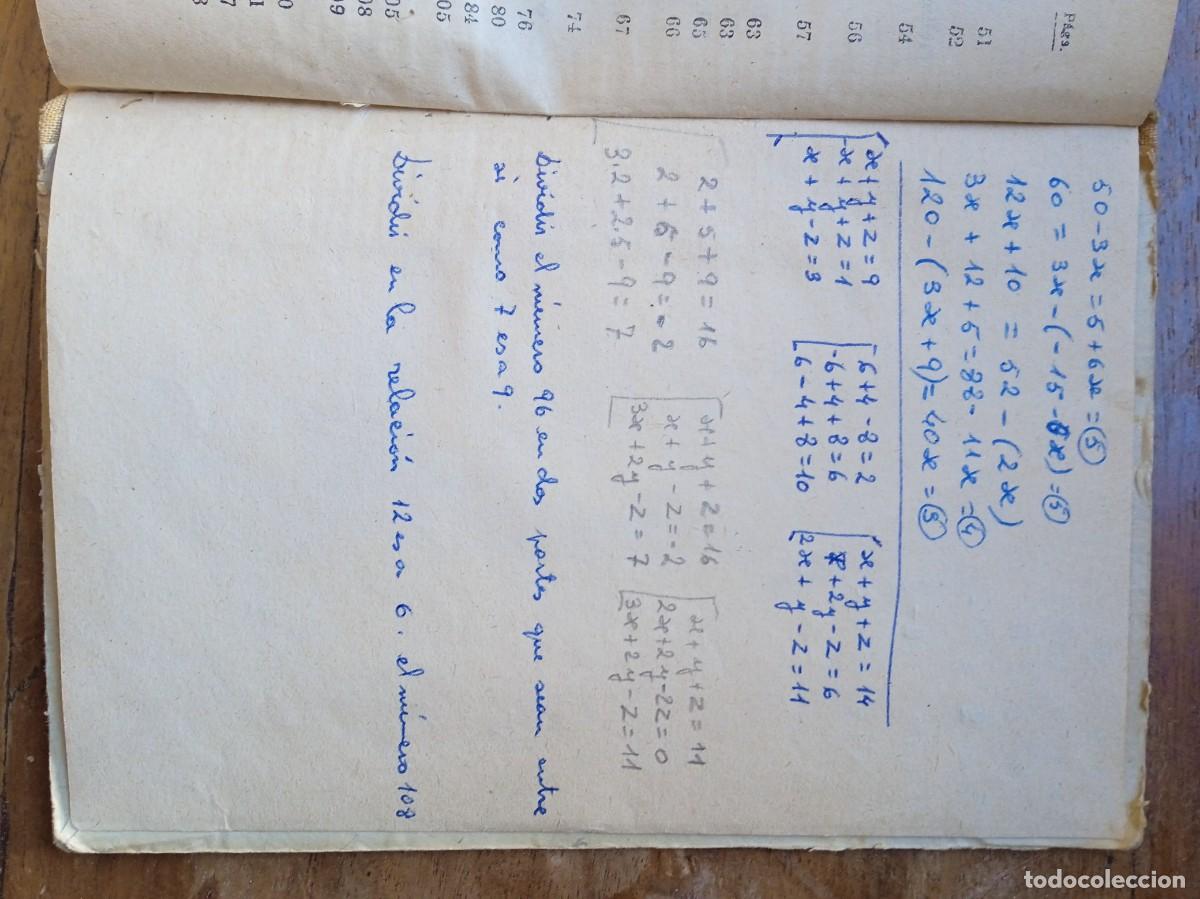 PÁGS.
51
52
54
56
57
63
63
65
66
67
74
76
80
84
05
05
08
09
50 - 3x = 5 + 6x = (5)
60 = 3x - (-15 - x) = (5)
12x + 10 = 52 - (2x)
3x + 12 + 5 = 88 - 11x = (4)
120 - (3x + 9) = 40x = (3)
x + y + z = 9
-x + y + z = 1
x + y - z = 3
6 + 4 - 8 = 2
-6 + 4 + 8 = 6
6 - 4 + 8 = 10
x + y + z = 14
x + 2y - z = 6
2x + y - z = 11
2 + 5 + 9 = 16
2 + 5 - 9 = -2
3.2 + 2.5 - 9 = 7
x + y + z = 16
x + y - z = -2
3x + 2y - z = 7
x + y + z = 11
2x + 2y - 2z = 0
3x + 2y - z = 11
Dividir el número 96 en dos partes que sean entre
sí como 7 es a 9.
Dividir en la relación 12 es a 6. el número 108
todocoleccion